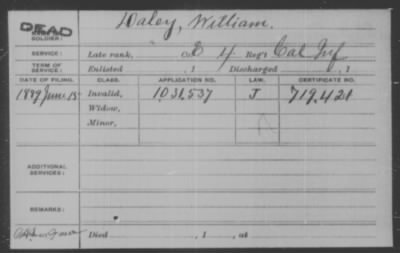 Daley, William.
DEAD
SOLDIER:
SERVICE: Late rank, Co. E 4 Reg't Cal Inf
TERM OF SERVICE: Enlisted , 1 Discharged , 1
DATE OF FILING. CLASS. APPLICATION NO. LAW. CERTIFICATE NO.
1889 June 15 Invalid, 1.031.537 J 719.421
Widow,
Minor,
ADDITIONAL SERVICES:
REMARKS:
Died , 1 , at